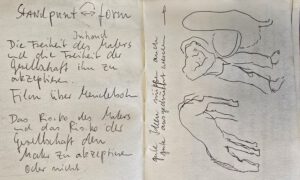 Standpunkt ↔ form
Inhalt
Die Freiheit des Malers
und die Freiheit der
Gesellschaft ihn zu
akzeptieren
Film über Mendelsohn
Das Risiko des Malers
und das Risiko der
Gesellschaft den
Maler zu akzeptieren
Oder nicht
gute Ideen müssen auch
gut ausgedrückt werden